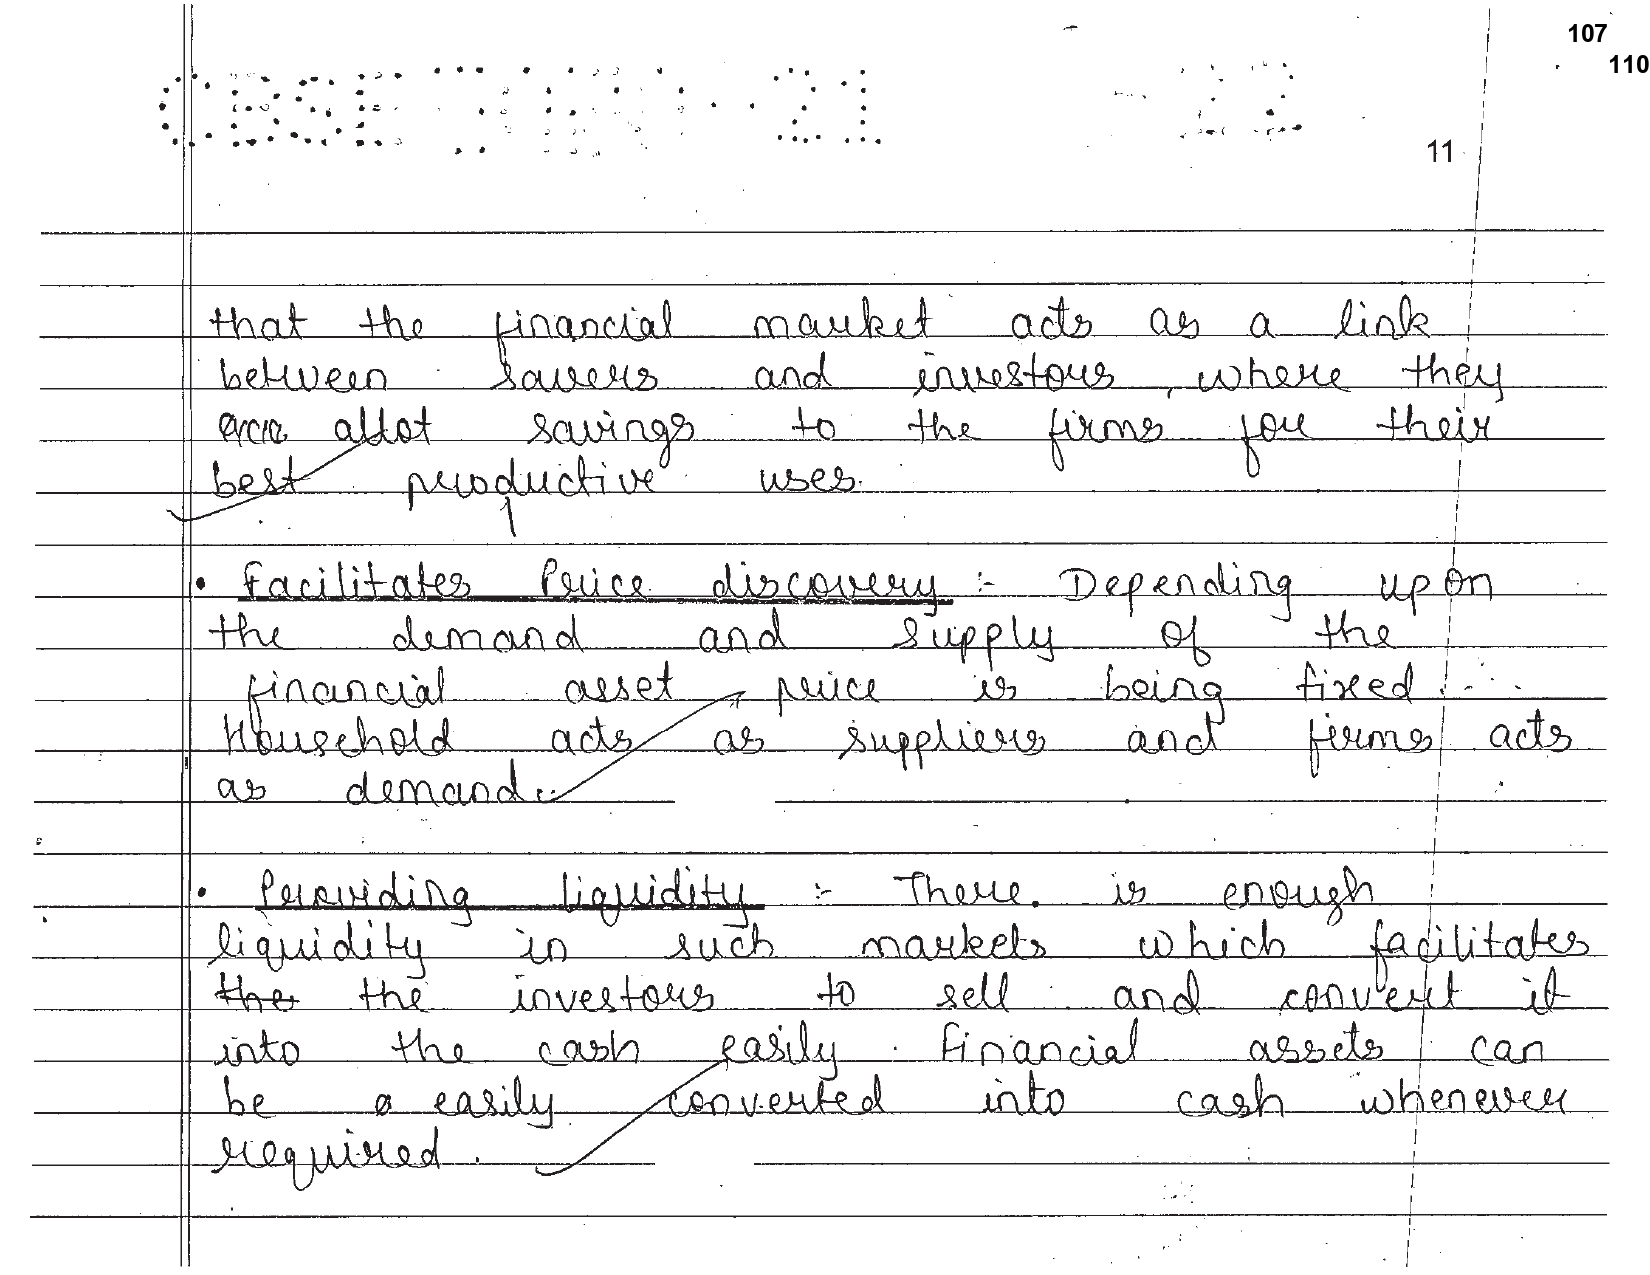 107
110
CBSE
21
22
11
that the financial market acts as a link
between savers and investors, where they
allot savings to the firms for their
best productive uses.
• Facilitates Price discovery :- Depending upon
the demand and supply of the
financial asset, price is being fixed.
Household acts as suppliers and firms acts
as demand.
• Providing liquidity :- There is enough
liquidity in such markets which facilitates
the the investors to sell and convert it
into the cash easily. Financial assets can
be a easily converted into cash whenever
required.